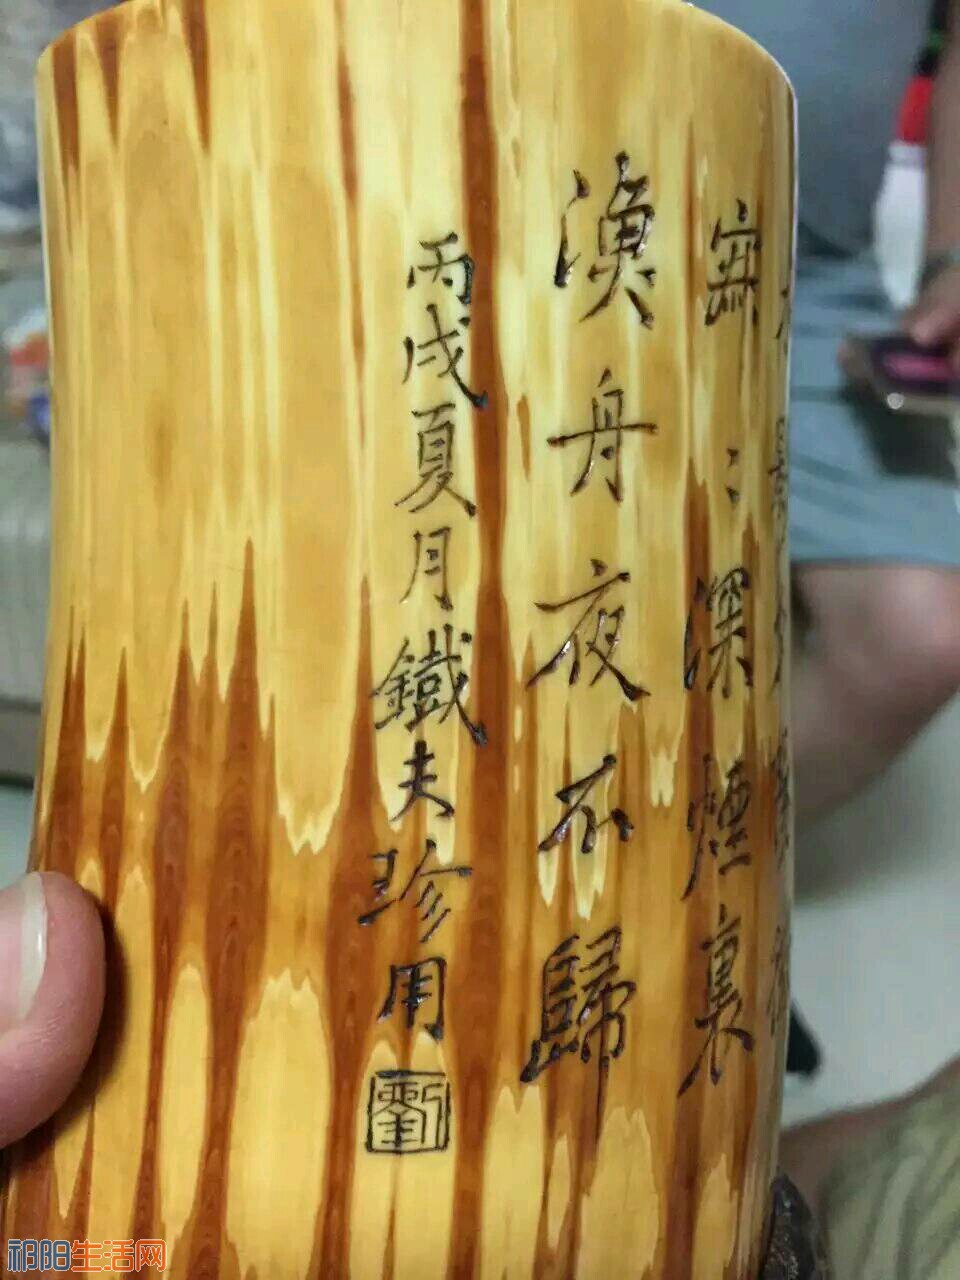 寂〻深煙裏
漁舟夜不歸
丙戌夏月鐵夫珍用
劉
祁阳生活网